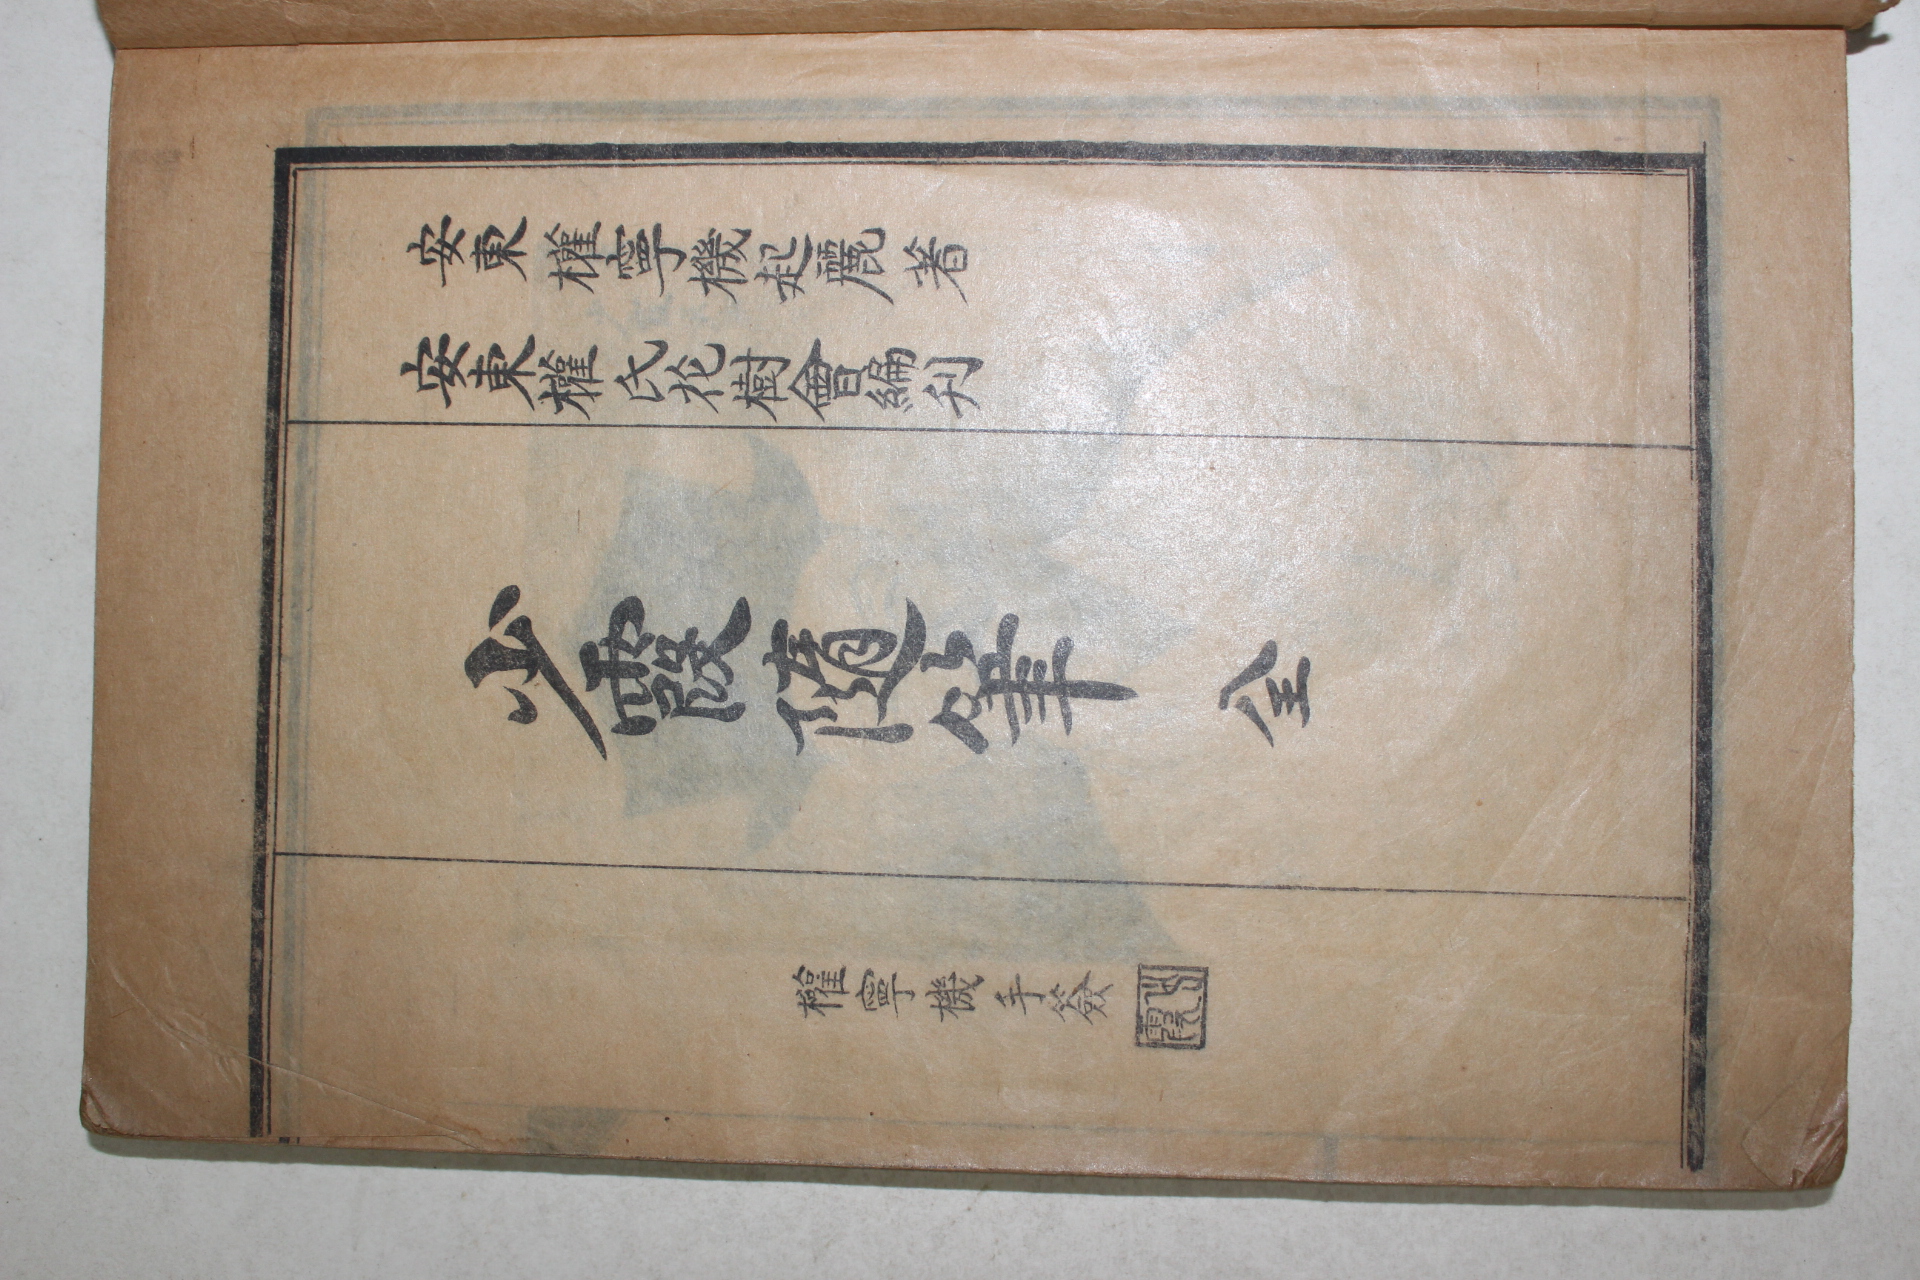 安東權寧機起麗著
安東權氏花樹會編刊
少霞隨筆 全
權寧機手簽